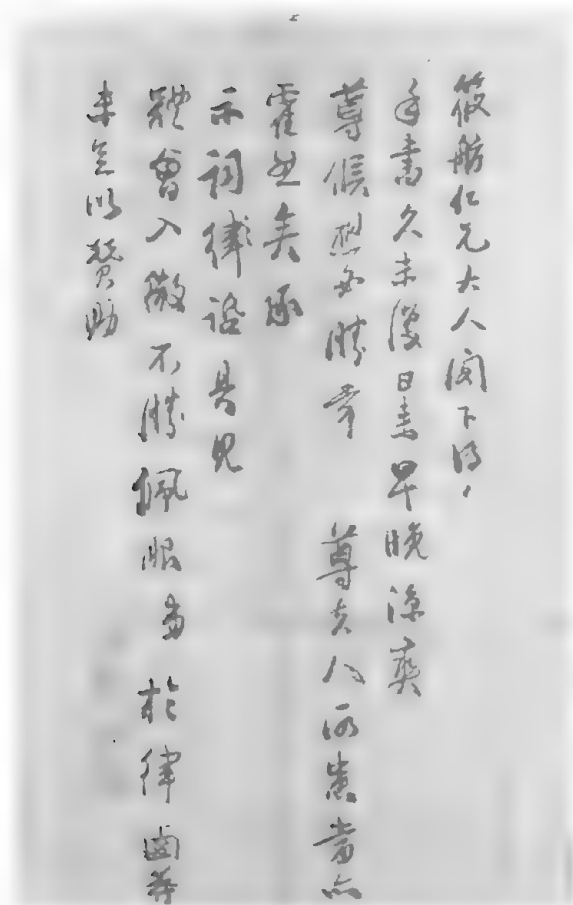 筱舫仁兄大人阁下得
手書久未復日來早晚涼爽
尊候想必勝常 尊夫人所患當亦
霍然矣承
示詞律誥具見
體會入微不勝佩服弟於律鹵莽
未足以贊助